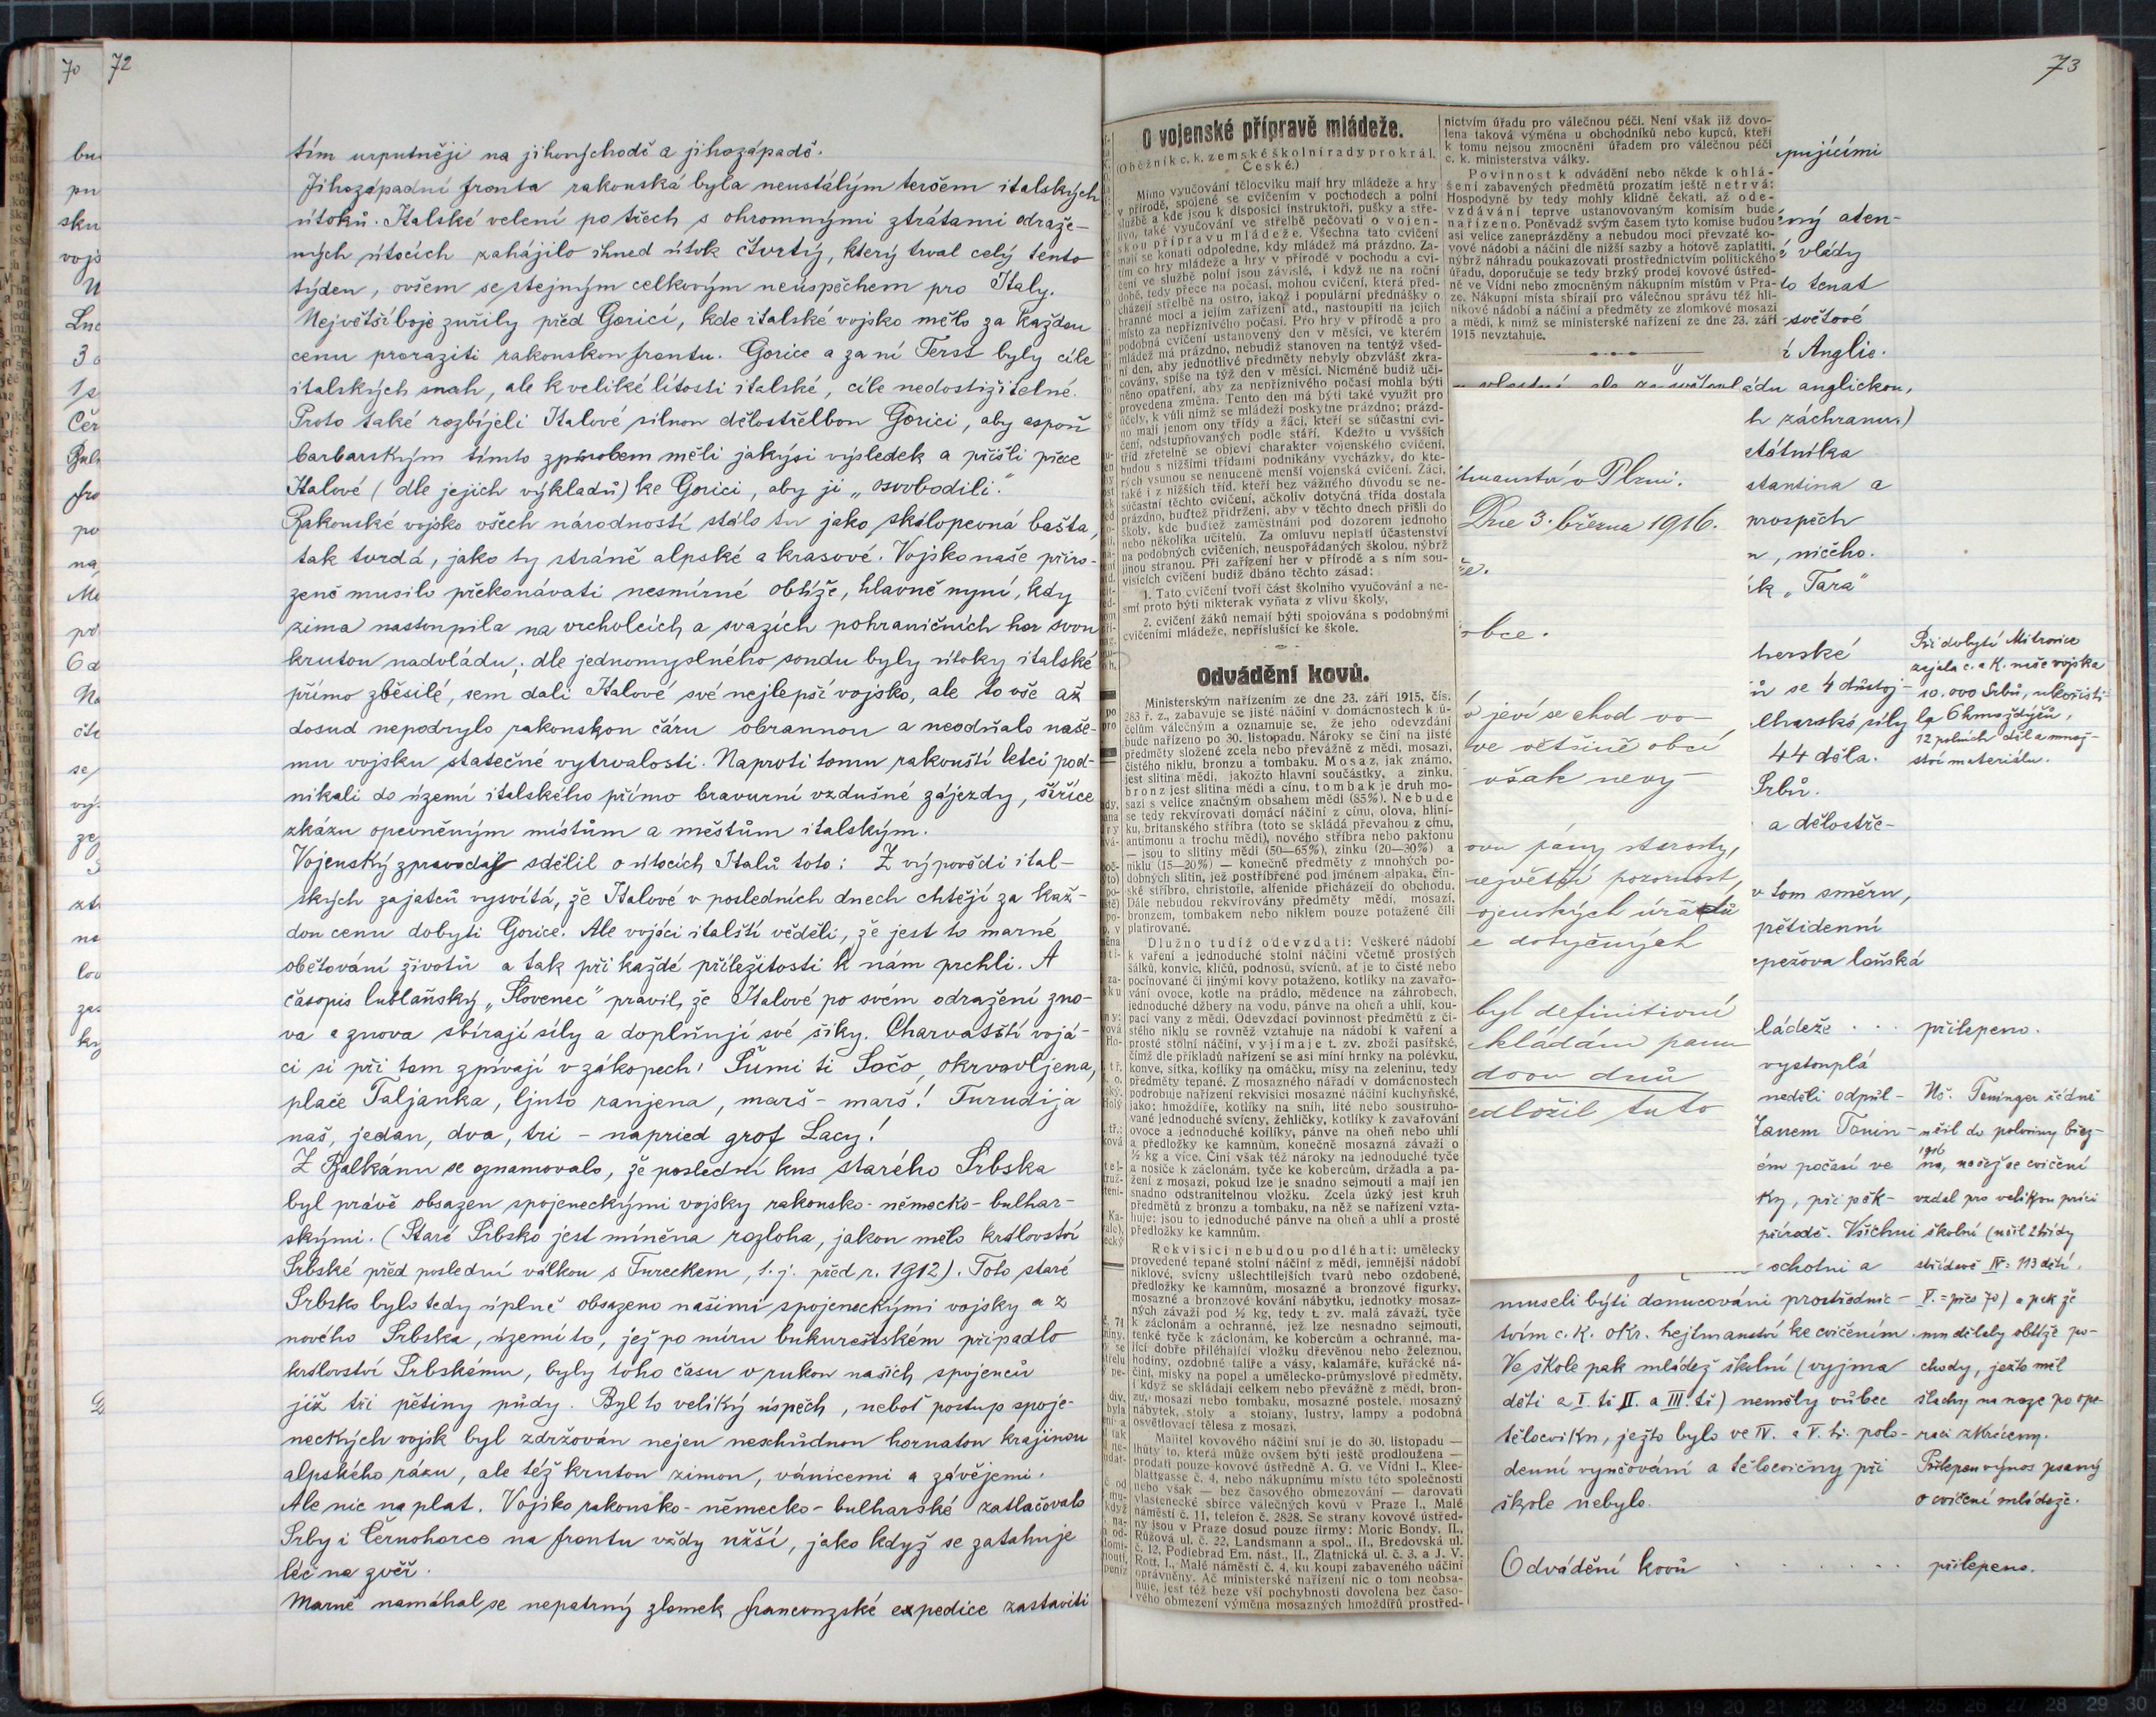 70
72
bu
pu
sku
vojs
N
Luc
3 o
1/2
Čer
Bul
fro
po
na
Mo
pří
6 d
Na
čte
se
vý
ze
zt
ne
lov
za
ky
tím urputněji na jihovýchodě a jihozápadě.
Jihozápadní fronta rakouská byla neustálým terčem italských
útoků. Italské velení po třech s ohromnými ztrátami odraže-
ných útocích zahájilo ihned útok čtvrtý, který trval celý tento
týden, ovšem se stejným celkovým neúspěchem pro Italy.
Největší boje zuřily před Goricí, kde italské vojsko mělo za každou
cenu proraziti rakouskou frontu. Gorice a za ní Terst byly cíle
italských snah, ale k veliké lítosti italské, cíle nedostižitelné.
Proto také rozbíjeli Italové silnou dělostřelbou Gorici, aby aspoň
barbarským tímto způsobem měli jakýsi výsledek a přišli přece
Italové (dle jejich výkladů) ke Gorici, aby ji „osvobodili."
Rakouské vojsko všech národností stálo tu jako skálopevná bašta,
tak tvrdá, jako ty stráně alpské a krasové. Vojsko naše přiro-
zeně musilo překonávati nesmírné obtíže, hlavně nyní, kdy
zima nastoupila na vrcholcích a svazích pohraničních hor svou
krutou nadvládu; dle jednomyslného soudu byly útoky italské
přímo zběsilé, sem dali Italové své nejlepší vojsko, ale to vše až
dosud nepodrylo rakouskou čáru obrannou a neodňalo naše-
mu vojsku statečné vytrvalosti. Naproti tomu rakouští letci pod-
nikali do území italského přímo bravurní vzdušné zájezdy, šíříce
zkázu opevněným místům a městům italským.
Vojenský zpravodaj sdělil o útocích Italů toto: Z výpovědi ital-
ských zajatců vysvítá, že Italové v posledních dnech chtějí za kaž-
dou cenu dobyti Gorice. Ale vojáci italští věděli, že jest to marné
obětování životů a tak při každé příležitosti k nám prchli. A
časopis lublaňský „Slovenec" pravil, že Italové po svém odražení zno-
va a znova sbírají síly a doplňují své šiky. Charvatští vojá-
ci si při tom zpívají v zákopech: Šumi ti Sočo, okrvavljena,
plače Taljanka, ljuto ranjena, marš-marš! Turudija
naš, jedan, dva, tri - napried grof Lacy!
Z Balkánu se oznamovalo, že poslední kus starého Srbska
byl právě obsazen spojeneckými vojsky rakousko-německo-bulhar-
skými. (Staré Srbsko jest míněna rozloha, jakou mělo království
Srbské před poslední válkou s Tureckem, t.j. před r. 1912). Toto staré
Srbsko bylo tedy úplně obsazeno našimi spojeneckými vojsky a z
nového Srbska, území to, jež po míru bukureštském připadlo
království Srbskému, byly toho času v rukou našich spojenců
již tři pětiny půdy. Byl to veliký úspěch, neboť postup spoje-
neckých vojsk byl zdržován nejen neschůdnou hornatou krajinou
alpského rázu, ale též krutou zimou, vánicemi a závějemi.
Ale nic naplat. Vojsko rakousko-německo-bulharské zatlačovalo
Srby i Černohorce na frontu vždy užší, jako když se zatahuje
léč na zvěř.
Marně namáhal se nepatrný zlomek francouzské expedice zastaviti
73
O vojenské přípravě mládeže.
(Oběžník c. k. zemské školní rady pro král. České.)
Mimo vyučování tělocviku mají hry mládeže a hry
v přírodě, spojené se cvičením v pochodech a polní
službě a kde jsou k disposici instruktoři, pušky a stře-
livo, také vyučování ve střelbě pečovati o vojen-
skou přípravu mládeže. Všechna tato cvičení
mají se konati odpoledne, kdy mládež má prázdno. Za-
tím co hry mládeže a hry v přírodě v pochodu a cvi-
čení ve službě polní jsou závislé, i když ne na roční
době, tedy přece na počasí, mohou cvičení, která před-
cházejí střelbě na ostro, jakož i populární přednášky o
hranné moci a jejím zařízení atd., nastoupiti na jejich
místo za nepříznivého počasí. Pro hry v přírodě a pro
podobná cvičení ustanovený den v měsíci, ve kterém
mládež má prázdno, nebudiž stanoven na tentýž všed-
ní den, aby jednotlivé předměty nebyly obzvlášť zkra-
covány, spíše na týž den v měsíci. Nicméně budiž uči-
něno opatření, aby za nepříznivého počasí mohla býti
provedena změna. Tento den má býti také využit pro
účely, k vůli nimž se mládeži poskytne prázdno; prázd-
no mají jenom ony třídy a žáci, kteří se súčastní cvi-
čení, odstupňovaných podle stáří. Kdežto u vyšších
tříd zřetelně se objeví charakter vojenského cvičení,
budou s nižšími třídami podnikány vycházky, do kte-
rých vsunou se nenuceně menší vojenská cvičení. Žáci,
také i z nižších tříd, kteří bez vážného důvodu se ne-
súčastní těchto cvičení, ačkoliv dotyčná třída dostala
prázdno, buďtež přidrženi, aby v těchto dnech přišli do
školy, kde buďtež zaměstnáni pod dozorem jednoho
nebo několika učitelů. Za omluvu neplatí účastenství
na podobných cvičeních, neuspořádaných školou, nýbrž
jinou stranou. Při zařízení her v přírodě a s ním sou-
visících cvičení budiž dbáno těchto zásad:
1. Tato cvičení tvoří část školního vyučování a ne-
smí proto býti nikterak vyňata z vlivu školy.
2. cvičení žáků nemají býti spojována s podobnými
cvičeními mládeže, nepříslušící ke škole.
Odvádění kovů.
Ministerským nařízením ze dne 23. září 1915, čís.
283 ř. z., zabavuje se jisté náčiní v domácnostech k ú-
čelům válečným a oznamuje se, že jeho odevzdání
bude nařízeno po 30. listopadu. Nároky se činí na jisté
předměty složené zcela nebo převážně z mědi, mosazi,
čistého niklu, bronzu a tombaku. Mosaz, jak známo,
jest slitina mědi, jakožto hlavní součástky, a zinku,
bronz jest slitina mědi a cínu, tombak je druh mo-
sazi s velice značným obsahem mědi (85%). Nebude
se tedy rekvírovati domácí náčiní z cínu, olova, hliní-
ku, britanského stříbra (toto se skládá převahou z cínu,
antimonu a trochu mědi), nového stříbra nebo pakfonu
— jsou to slitiny mědi (50—65%), zinku (20—30%) a
niklu (15—20%) — konečně předměty z mnohých po-
dobných slitin, jež postříbřené pod jménem alpaka, čín-
ské stříbro, christofle, alfenide přicházejí do obchodu.
Dále nebudou rekvírovány předměty mědí, mosazí,
bronzem, tombakem nebo niklem pouze potažené čili
platirované.
Dlužno tudíž odevzdati: Veškeré nádobí
k vaření a jednoduché stolní náčiní včetně prostých
šálků, konvic, klíčů, podnosů, svícnů, ať je to čisté nebo
pocínované či jinými kovy potaženo, kotlíky na zavařo-
vání ovoce, kotle na prádlo, měděnce na záhrobech,
jednoduché džbery na vodu, pánve na oheň a uhlí, kou-
pací vany z mědi. Odevzdací povinnost předmětů z či-
stého niklu se rovněž vztahuje na nádobí k vaření a
prosté stolní náčiní, vyjímaje t. zv. zboží pasířské,
čímž dle příkladů nařízení se asi míní hrnky na polévku,
konve, sítka, koflíky na omáčku, mísy na zeleninu, tedy
předměty tepané. Z mosazného nářadí v domácnostech
podrobuje nařízení rekvisici mosazné náčiní kuchyňské,
jako: hmoždíře, kotlíky na sníh, lité nebo soustruho-
vané jednoduché svícny, žehličky, kotlíky k zavařování
ovoce a jednoduché koflíky, pánve na oheň nebo uhlí
a předložky ke kamnům, konečně mosazná závaží o
½ kg a více. Činí však též nároky na jednoduché tyče
a nosiče k záclonám, tyče ke kobercům, držadla a pa-
žení z mosazi, pokud lze je snadno sejmouti a mají jen
snadno odstranitelnou vložku. Zcela úzký jest kruh
předmětů z bronzu a tombaku, na něž se nařízení vzta-
huje: jsou to jednoduché pánve na oheň a uhlí a prosté
předložky ke kamnům.
Rekvisici nebudou podléhati: umělecky
provedené tepané stolní náčiní z mědi, jemnější nádobí
niklové, svícny ušlechtilejších tvarů nebo ozdobené,
předložky ke kamnům, mosazné a bronzové figurky,
mosazné a bronzové kování nábytku, jednotky mosaz-
ných závaží pod ½ kg, tedy t. zv. malá závaží, tyče
k záclonám a ochranné, jež lze nesnadno sejmouti,
tenké tyče k záclonám, ke kobercům a ochranné, ma-
jící dobře přiléhající vložku dřevěnou nebo železnou,
hodiny, ozdobné talíře a vásy, kalamáře, kuřácké ná-
činí, misky na popel a umělecko-průmyslové předměty,
i když se skládají celkem nebo převážně z mědi, bron-
zu, mosazi nebo tombaku, mosazné postele, mosazný
nábytek, stoly a stojany, lustry, lampy a podobná
osvětlovací tělesa z mosazi.
Majitel kovového náčiní smí je do 30. listopadu —
lhůty to, která může ovšem býti ještě prodloužena —
prodati pouze kovové ústředně A. G. ve Vídni I., Klee-
blattgasse č. 4, nebo nákupnímu místu této společnosti
nebo však — bez časového obmezování — darovati
vlastenecké sbírce válečných kovů v Praze I., Malé
náměstí č. 11, telefon č. 2828. Se strany kovové ústřed-
ny jsou v Praze dosud pouze firmy: Moric Bondy, II.,
Růžová ul. č. 22, Landsmann a spol., II., Bredovská ul.
č. 12, Podlebrad Em. nást., II., Zlatnická ul. č. 3, a J. V.
Rott, I., Malé náměstí č. 4, ku koupi zabaveného náčiní
oprávněny. Ač ministerské nařízení nic o tom neobsa-
huje, jest též beze vší pochybnosti dovolena bez časo-
vého obmezení výměna mosazných hmoždířů prostřed-
nictvím úřadu pro válečnou péči. Není však již dovo-
lena taková výměna u obchodníků nebo kupců, kteří
k tomu nejsou zmocněni úřadem pro válečnou péči
c. k. ministerstva války.
Povinnost k odvádění nebo někde k ohlá-
šení zabavených předmětů prozatím ještě netrvá:
Hospodyně by tedy mohly klidně čekati, až ode-
vzdávání teprve ustanovovaným komisím bude
nařízeno. Poněvadž svým časem tyto komise budou
asi velice zaneprázdněny a nebudou moci převzaté ko-
vové nádobí a náčiní dle nižší sazby a hotově zaplatiti,
nýbrž náhradu poukazovati prostřednictvím politického
úřadu, doporučuje se tedy brzký prodej kovové ústřed-
ně ve Vídni nebo zmocněným nákupním místům v Pra-
ze. Nákupní místa sbírají pro válečnou správu též hli-
níkové nádobí a náčiní a předměty ze zlomkové mosazi
a mědi, k nimž se ministerské nařízení ze dne 23. září
1915 nevztahuje.
pujícími
ený aten-
é vlády
to tenat
světové
í Anglie.
ádu anglickou,
h záchranu.)
státníka
stantina a
prospěch
n, ničeho.
ík „Tara"
herské
ů se 4 důstoj-
lharské síly
44 děla.
Srbů.
a dělostře-
v tom směru,
pětidenní
epežova loňská
ládeže . . . přilepeno.
vystouplá
neděli odpůl-
Žanem Tonin-
ém počasí ve
ky, při pěk-
přírodě. Všichni
ochotni a
tmanství v Plzni.
Dne 3. března 1916.
že.
obce.
ó jeví se chod vo-
ve většině obcí
však nevy-
ovu pány starosty,
největší pozornost,
ojenských úřadů
e dotyčných
byl definitivní
kládám panu
dvou dnů
edložil tuto
Při dobytí Mitrovice
zajala c. a k. naše vojska
10.000 Srbů, ukořisti-
la 6 hmoždýřů,
12 polních děl a množ-
ství materiálu.
Uč. Teninger řídně
učil do poloviny břez-
1916
na, načež se cvičení
vzdal pro velikou práci
školní (učil 2 třídy
střídavě IV = 113 dětí,
V. = přes 70) a pak že
mu dělaly obtíže po-
chody, ježto měl
šlachy na noze po ope-
raci zkráceny.
Přilepen výnos psaný
o cvičení mládeže.
museli býti donucováni prostřednic-
tvím c. k. okr. hejtmanství ke cvičením.
Ve škole pak mládež školní (vyjma
děti z I. tř. II. a III. tř.) neměly vůbec
tělocviku, ježto bylo ve IV. a V. tř. polo-
denní vyučování a tělocvičny při
škole nebylo.
Odvádění kovů . . . . . . přilepeno.